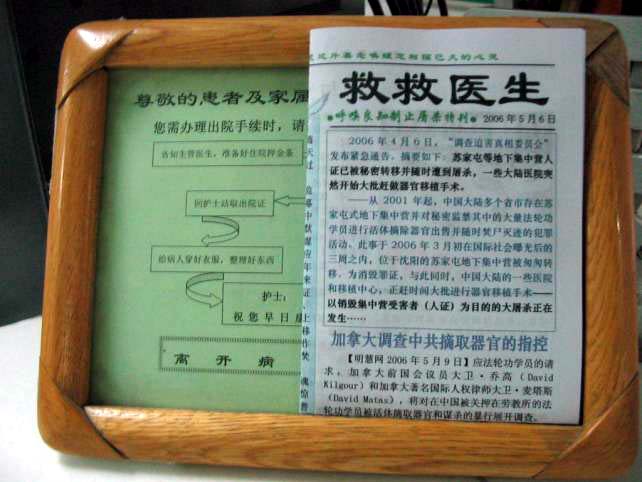 尊敬的患者及家属
您需办理出院手续时，请
告知主管医生，准备好住院押金条
回护士站取出院证
给病人穿好衣服，整理好东西
护士：
祝您早日
离 开 病
救救医生
呼唤良知制止屠杀特刊 2006年5月6日
2006年4月6日，“调查迫害真相委员会”
发布紧急通告，摘要如下：苏家屯等地下集中营人
证已被秘密转移并随时遭到屠杀，一些大陆医院突
然开始大批赶做器官移植手术。
——从 2001 年起，中国大陆多个省市存在苏
家屯式地下集中营并对秘密监禁其中的大量法轮功
学员进行活体摘除器官出售并随时焚尸灭迹的犯罪
活动。此事于 2006 年 3 月初在国际社会曝光后的
三周之内，位于沈阳的苏家屯地下集中营被匆匆转
移。为消毁罪证，与此同时，中国大陆的一些医院
和移植中心，正赶时间大批进行器官移植手术——
以销毁集中营受害者（人证）为目的的大屠杀正在
发生……
加拿大调查中共摘取器官的指控
【明慧网2006年5月9日】应法轮功学员的请
求，加拿大前国会议员大卫·乔高（David
Kilgour）和加拿大著名国际人权律师大卫·麦塔斯
（David Matas），将对在中国被关押在劳教所的法
轮功学员被活体摘取器官和谋杀的暴行展开调查。